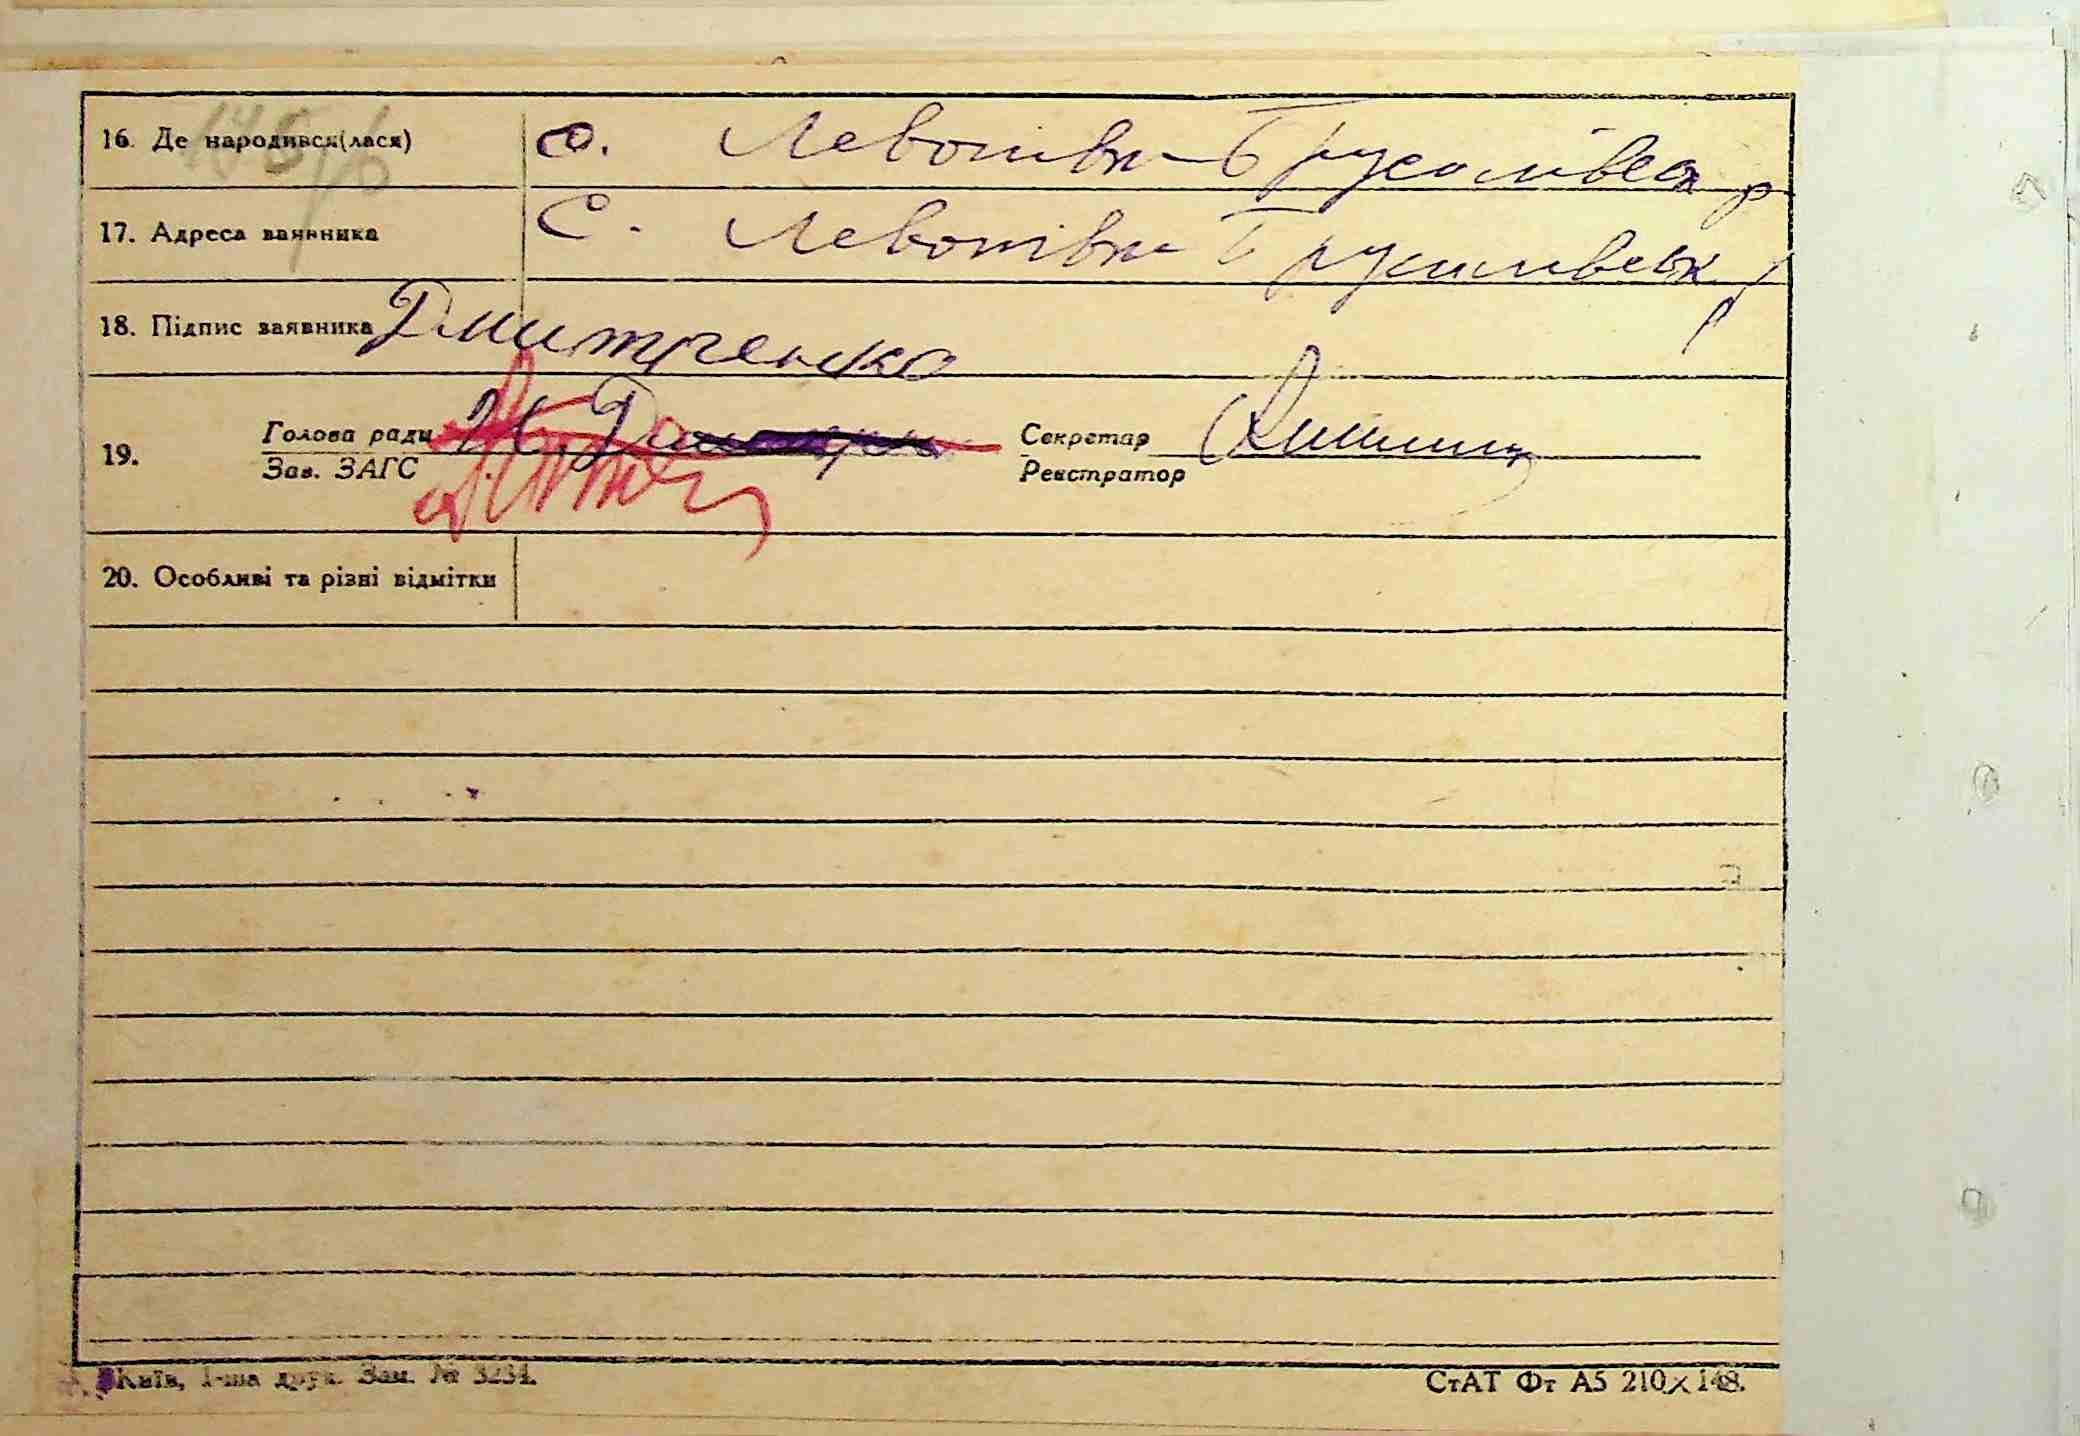 16. Де народився(лася) с. Левонівк Брусилівськ р
17. Адреса заявника С. Левонівк Брусилівськ р
18. Підпис заявника Дмитренко
19. Голова ради Секретар
Зав. ЗАГС Реєстратор
20. Особливі та різні відмітки
Київ, 1-ша друк. Зам. № 3234. СтАТ Фт А5 210×148.